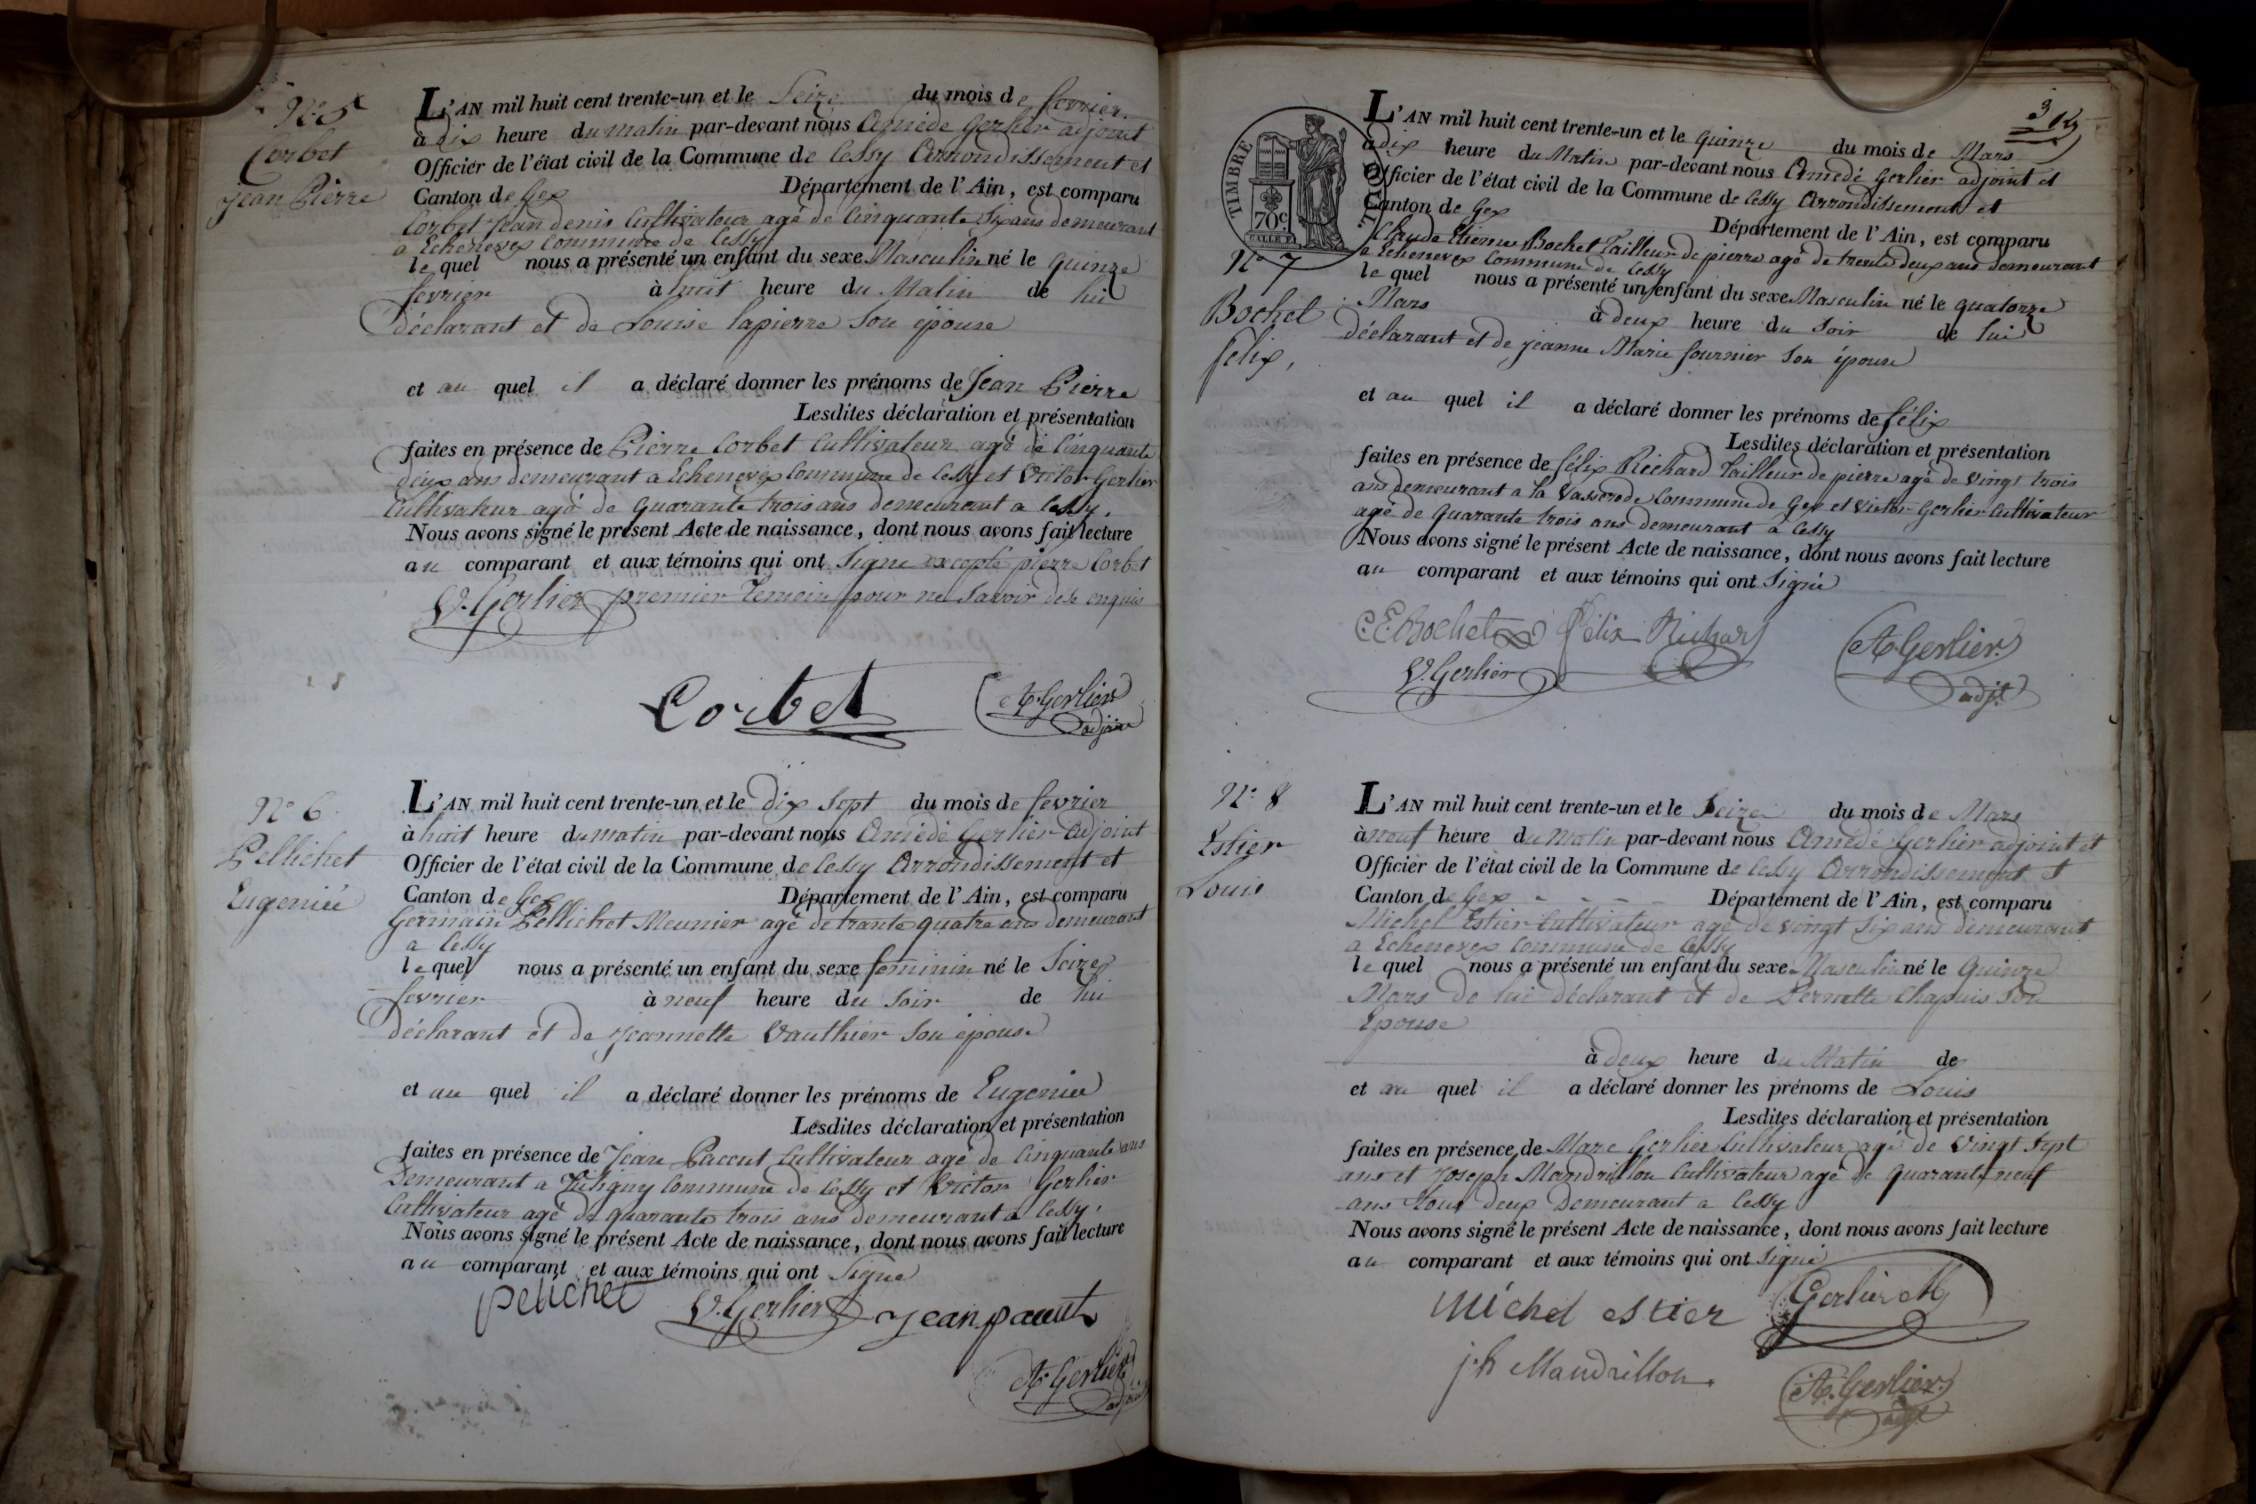 N° 5
Corbet
Jean Pierre
L'AN mil huit cent trente-un et le Seize du mois de fevrier
à dix heure du matin par-devant nous Amédé Gerlier adjoint
Officier de l'état civil de la Commune de Cessy Arrondissement et
Canton de Gex Département de l'Ain, est comparu
Corbet Jean denis Cultivateur agé de Cinquante Six ans demeurant
a Echenevex Commune de Cessy
le quel nous a présenté un enfant du sexe Masculin né le quinze
fevrier à huit heure du Matin de lui
déclarant et de Louise lapierre Son épouse
et au quel il a déclaré donner les prénoms de Jean Pierre
Lesdites déclaration et présentation
faites en présence de Pierre Corbet Cultivateur agé de Cinquante
deux ans demeurant a Echenevex Commune de Cessy et Victor Gerlier
Cultivateur agé de quarante trois ans demeurant a Cessy.
Nous avons signé le présent Acte de naissance, dont nous avons fait lecture
au comparant et aux témoins qui ont Signe excepté pierre Corbet
V. Gerlier premier Temoin pour ne Savoir de ce enquis
Corbet
A. Gerlier
adjoint
N° 6
Pellichet
Eugenié
L'AN mil huit cent trente-un et le dix Sept du mois de fevrier
à huit heure du matin par-devant nous Amédé Gerlier Adjoint
Officier de l'état civil de la Commune de Cessy Arrondissement et
Canton de Gex Département de l'Ain, est comparu
Germain Pellichet Meunier agé de trante quatre ans demeurant
a Cessy
le quel nous a présenté un enfant du sexe feminin né le Seize
fevrier à neuf heure du Soir de lui
déclarant et de Jeannette Vauthier Son épouse
et au quel il a déclaré donner les prénoms de Eugenie
Lesdites déclaration et présentation
faites en présence de Jean Paccut Cultivateur agé de Cinquante ans
Demeurant a Tutigny Commune de Cessy et Victor Gerlier
Cultivateur agé de quarante trois ans demeurant a Cessy.
Nous avons signé le présent Acte de naissance, dont nous avons fait lecture
au comparant et aux témoins qui ont Signe
pelichet V. Gerlier jean paccut
A. Gerlier
3
TIMBRE ROYAL
70 c.
N° 7
Bochet
félix,
L'AN mil huit cent trente-un et le quinze du mois de Mars
à dix heure du Matin par-devant nous Amédé Gerlier adjoint et
Officier de l'état civil de la Commune de Cessy Arrondissement et
Canton de Gex Département de l'Ain, est comparu
Claude Etienne Bochet Tailleur de pierre agé de trente deux ans demeurant
a Echenevex Commune de Cessy
le quel nous a présenté un enfant du sexe Masculin né le quatorze
Mars à deux heure du Soir de lui
déclarant et de jeanne Marie fournier Son épouse
et au quel il a déclaré donner les prénoms de félix
Lesdites déclaration et présentation
faites en présence de félix Richard Tailleur de pierre agé de vingt trois
ans demeurant a la Vasserode Commune de Gex et Victor Gerlier Cultivateur
agé de quarante trois ans demeurant à Cessy
Nous avons signé le présent Acte de naissance, dont nous avons fait lecture
au comparant et aux témoins qui ont Signé
C. E. Bochet Félix Richard A. Gerlier
V. Gerlier adjt.
N° 8
Estier
Louis
L'AN mil huit cent trente-un et le Seize du mois de Mars
à neuf heure du Matin par-devant nous Amédé Gerlier adjoint et
Officier de l'état civil de la Commune de Cessy Arrondissement et
Canton de Gex Département de l'Ain, est comparu
Michel Estier Cultivateur agé de vingt Six ans demeurant
a Echenevex Commune de Cessy
le quel nous a présenté un enfant du sexe Masculin né le Quinze
Mars de lui déclarant et de Pernette Chapuis Son
Epouse
à deux heure du Matin de
et au quel il a déclaré donner les prénoms de Louis
Lesdites déclaration et présentation
faites en présence de Marc Gerlier Cultivateur agé de vingt Sept
ans et Joseph Mandrillon Cultivateur agé de quarante neuf
ans tous deux Demeurant a Cessy
Nous avons signé le présent Acte de naissance, dont nous avons fait lecture
au comparant et aux témoins qui ont Signé
Michel estier Gerlier M
jh Mandrillon.
A. Gerlier
adjt